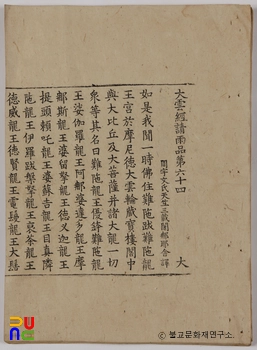 大雲經請雨品第六十四
大
闍那耶舍
合譯
如是我聞一時佛住難陁跋難陁龍
王宮於摩尼德大雲輪藏寶樓閣中
與大比丘及大菩薩并諸大龍一切
衆等其名曰難陁龍王優鉢難陁龍
王娑伽羅龍王阿那婆達多龍王摩
那斯龍王婆留拏龍王德叉迦龍王
提頭賴吒龍王婆蘇吉龍王目真隣
陁龍王伊羅跋拏龍王分茶龍王
德威龍王德賢龍王電鬘龍王大髻
불교문화재연구소